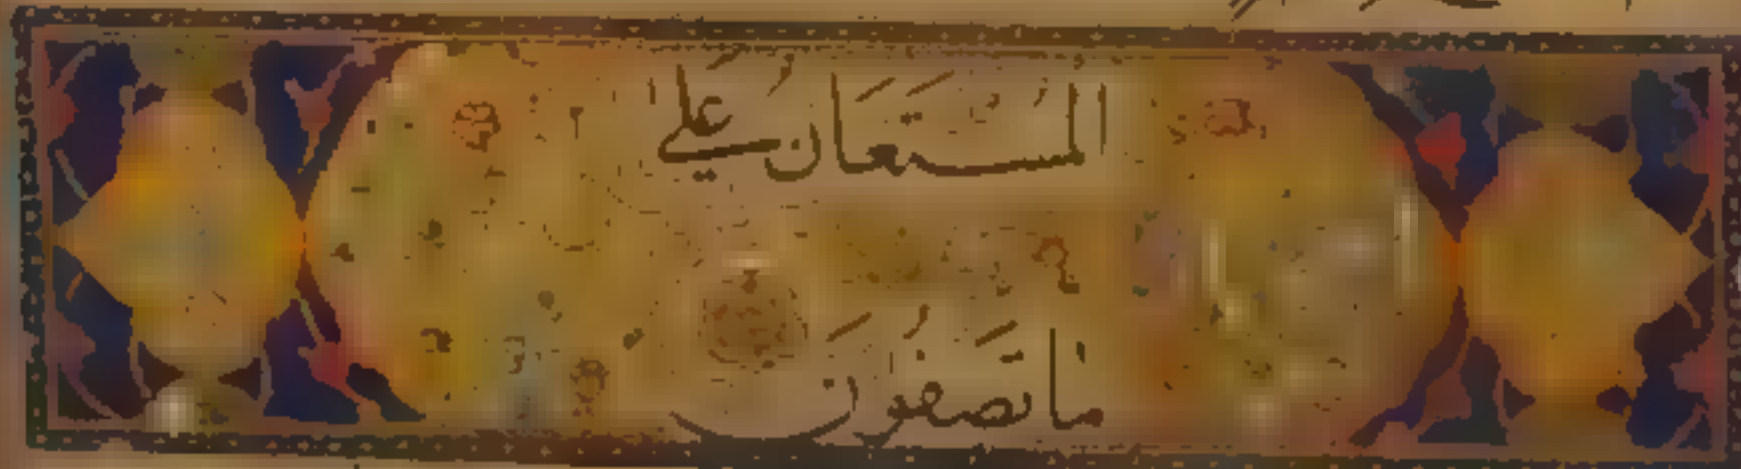 المستعان على
ما تصفون